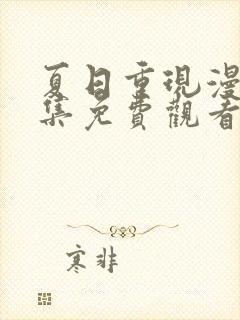 夏日重現漫
集免費觀看
寒非